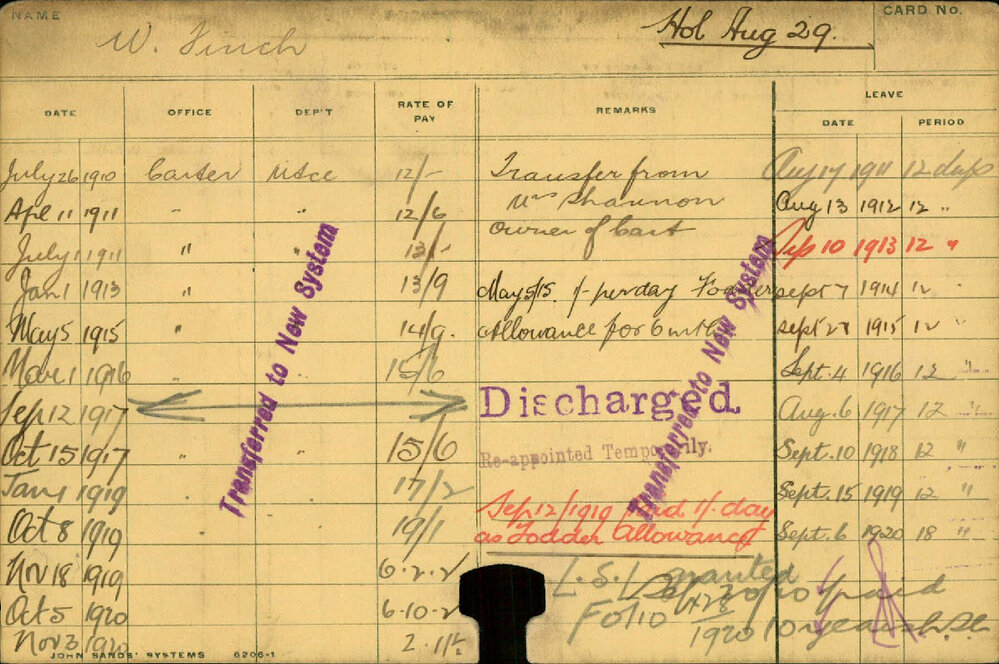 NAME
W. Finch
Hol Aug 29.
CARD No.
DATE OFFICE DEP'T RATE OF PAY REMARKS LEAVE
DATE PERIOD
July 26 1910 Carter 12/- Transfer from Aug 17 1911 12 days
Apl 11 1911 " " 12/6 Mrs Shannon Aug 13 1912 12 "
July 1 1911 " " 13/- owner of Cart Sep 10 1913 12 "
Jan 1 1913 " 13/9 May 5/15. 1/- per day Fodder Sept 7 1914 12 "
May 5 1915 " 14/9. Allowance for 6 mths Sept 27 1915 12 "
Mar 1 1916 " " 15/6 Sept. 4 1916 12 "
Sep 12 1917 Discharged. Aug. 6 1917 12 "
Oct 15 1917 " " 15/6 Re-appointed Temporarily. Sept. 10 1918 12 "
Jan 1 1919 " " 17/2 Sept. 15 1919 12 "
Sep 12/1919 Paid 1/. day
Oct 8 1919 19/1 as Fodder Allowance Sept. 6 1920 18 "
Nov 18 1919 6.2.2 L.S.L granted
Oct 5 1920 6.10.2 Folio 428/1920 paid
Nov 3 1920 2.11½ 10 years
Transferred to New System
Transferred to New System
JOHN SANDS' SYSTEMS 6206-1